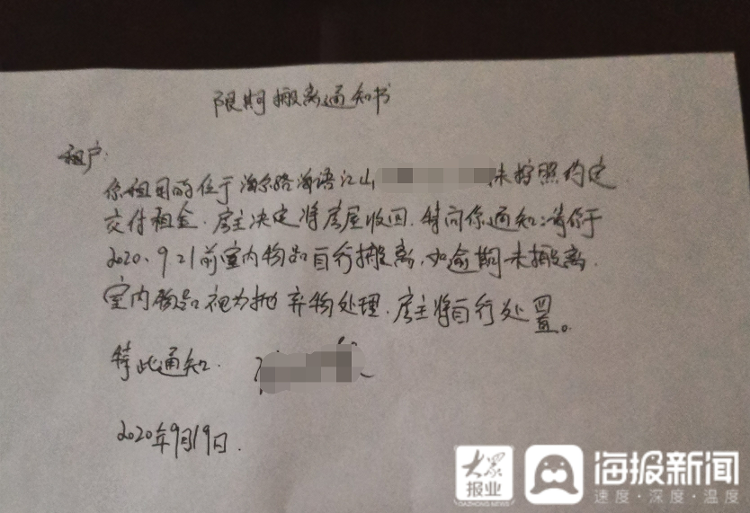 限期搬离通知书
租户:
你租用的位于海尔路海语江山 未按照约定
交付租金.房主决定将房屋收回.特向你通知:请你于
2020、9.21前室内物品自行搬离,如逾期未搬离.
室内物品视为抛弃物处理.房主将自行处置。
特此通知.
2020年9月19日.
大众报业
DAZHONG NEWS
海报新闻
速度·深度·温度